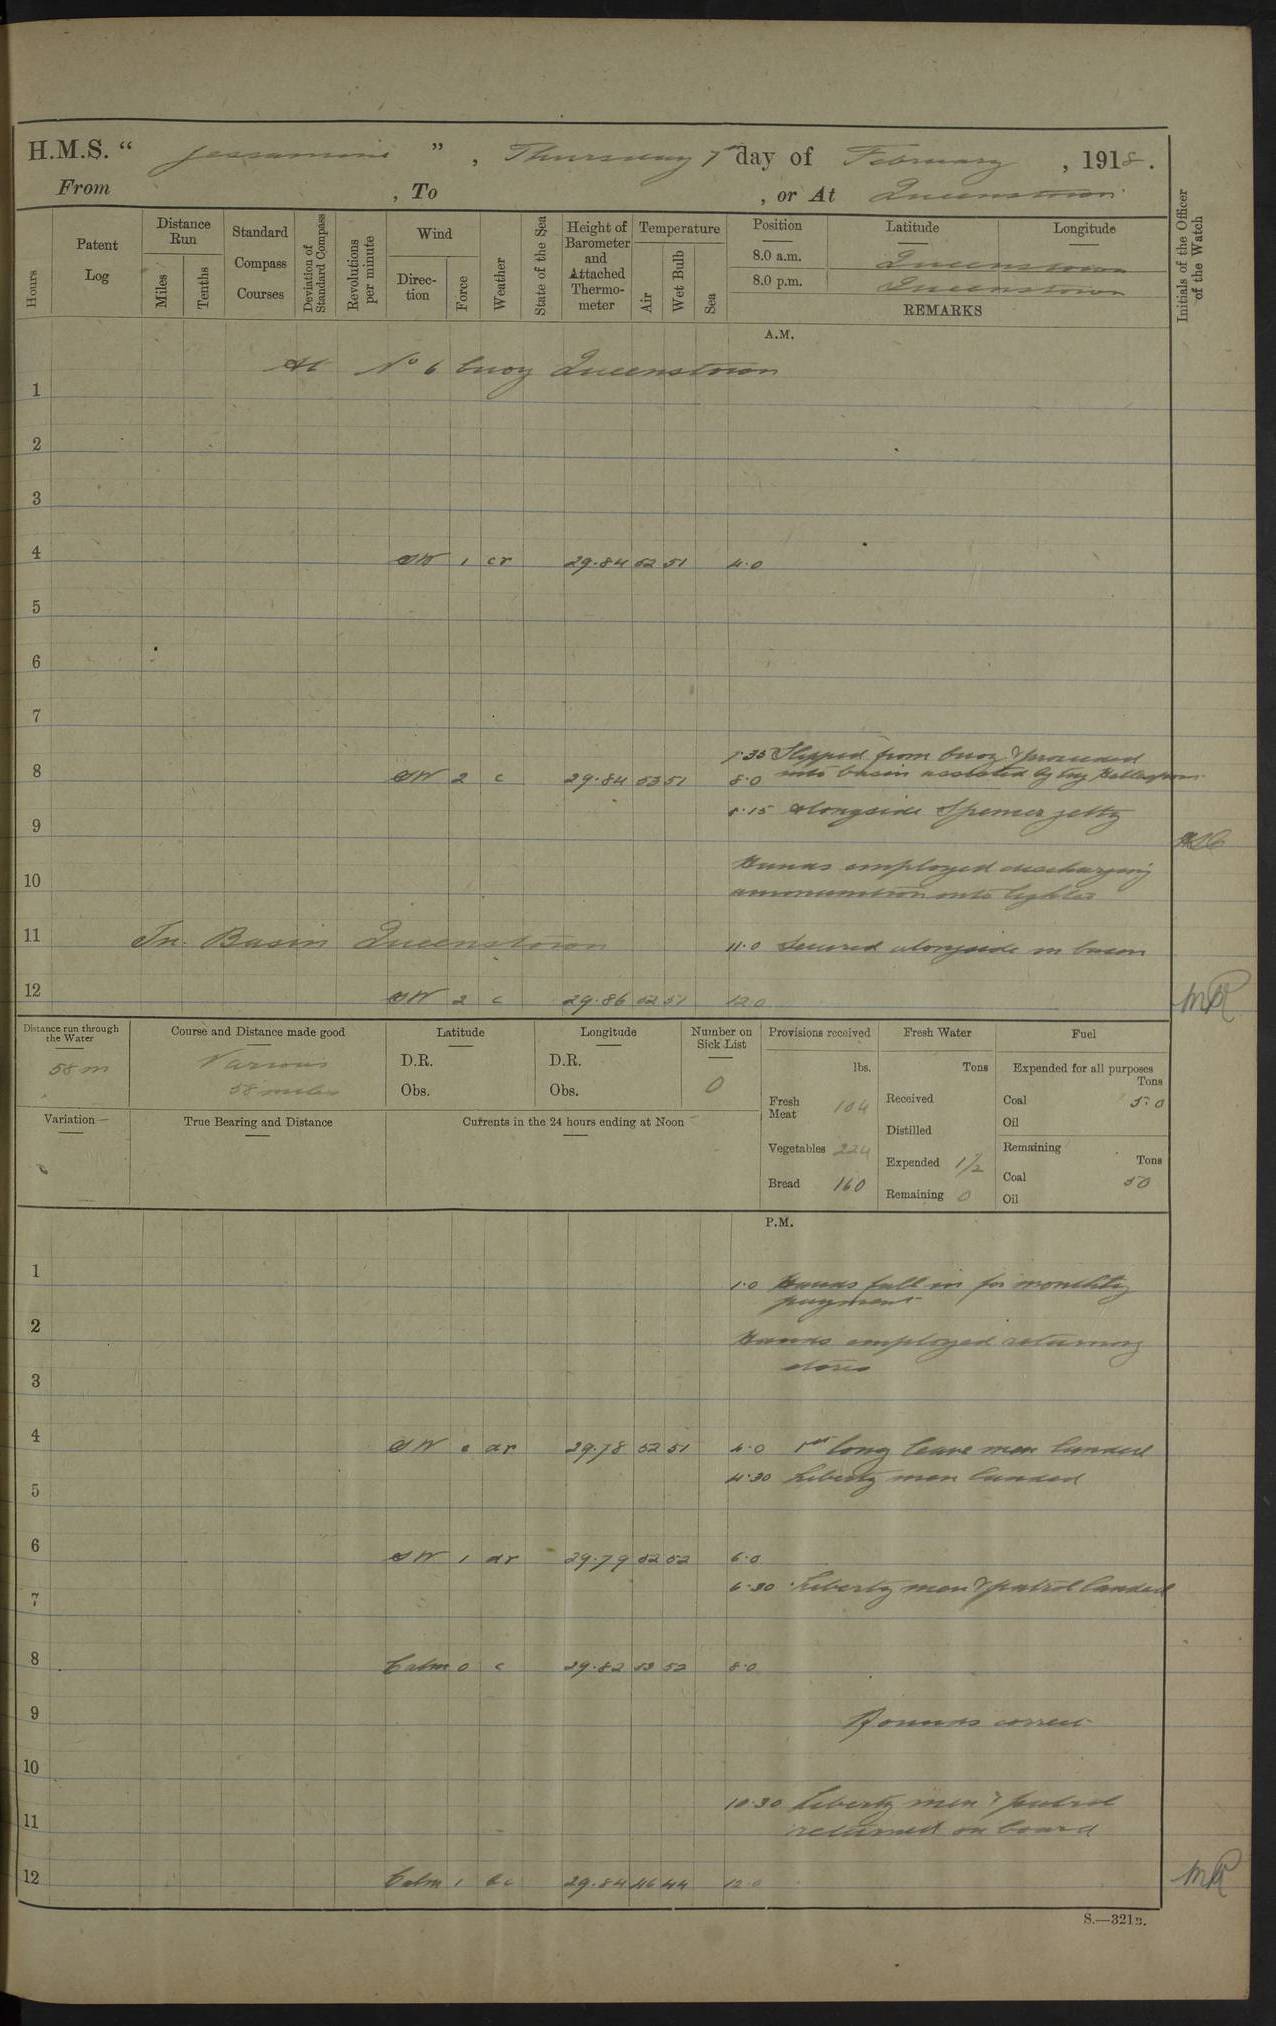 H.M.S. " Jessamine " , Thursday 7th day of February , 1918 .
From , To , or At Queenstown
Hours
Patent Log
Distance Run
Miles
Tenths
Standard Compass Courses
Deviation of Standard Compass
Revolutions per minute
Wind
Direction
Force
Weather
State of the Sea
Height of Barometer and Attached Thermometer
Temperature
Air
Wet Bulb
Sea
Position
8.0 a.m.
8.0 p.m.
Latitude
Longitude
Queenstown
Queenstown
REMARKS
Initials of the Officer of the Watch
A.M.
At No 6 buoy Queenstown
1
2
3
4 SW 1 cr 29.84 52 51 4.0
5
6
7
7.35 Slipped from buoy & proceeded
8 SW 2 c 29.84 53 51 8.0 into basin assisted by tug
8.15 Alongside Spencer jetty
9
Hands employed discharging
10
ammunition into lighter
11 In Basin Queenstown 11.0 Secured alongside in basin
12 SW 2 c 29.86 52 51 12.0 MR
Distance run through the Water
58 m
Course and Distance made good
Various
58 miles
Latitude
D.R.
Obs.
Longitude
D.R.
Obs.
Number on Sick List
0
Provisions received
lbs.
Fresh Meat 104
Vegetables 224
Bread 160
Fresh Water
Tons
Received
Distilled
Expended 1 1/2
Remaining 0
Fuel
Expended for all purposes
Tons
Coal 5.0
Oil
Remaining
Tons
Coal 50
Oil
Variation
True Bearing and Distance
Currents in the 24 hours ending at Noon
P.M.
1 1.0 Hands fall in for monthly
payment
2 Hands employed returning
stores
3
4 SW dr 29.78 52 51 4.0 1st long leave men landed
4.30 Liberty men landed
5
6 SW 1 dr 29.79 52 52 6.0
6.30 Liberty men & patrol landed
7
8 Calm 0 c 29.82 53 52 8.0
9 Rounds correct
10
10.30 Liberty men & patrol
11 returned on board
12 Calm 1 bc 29.84 46 44 12.0 MR
S.—321B.